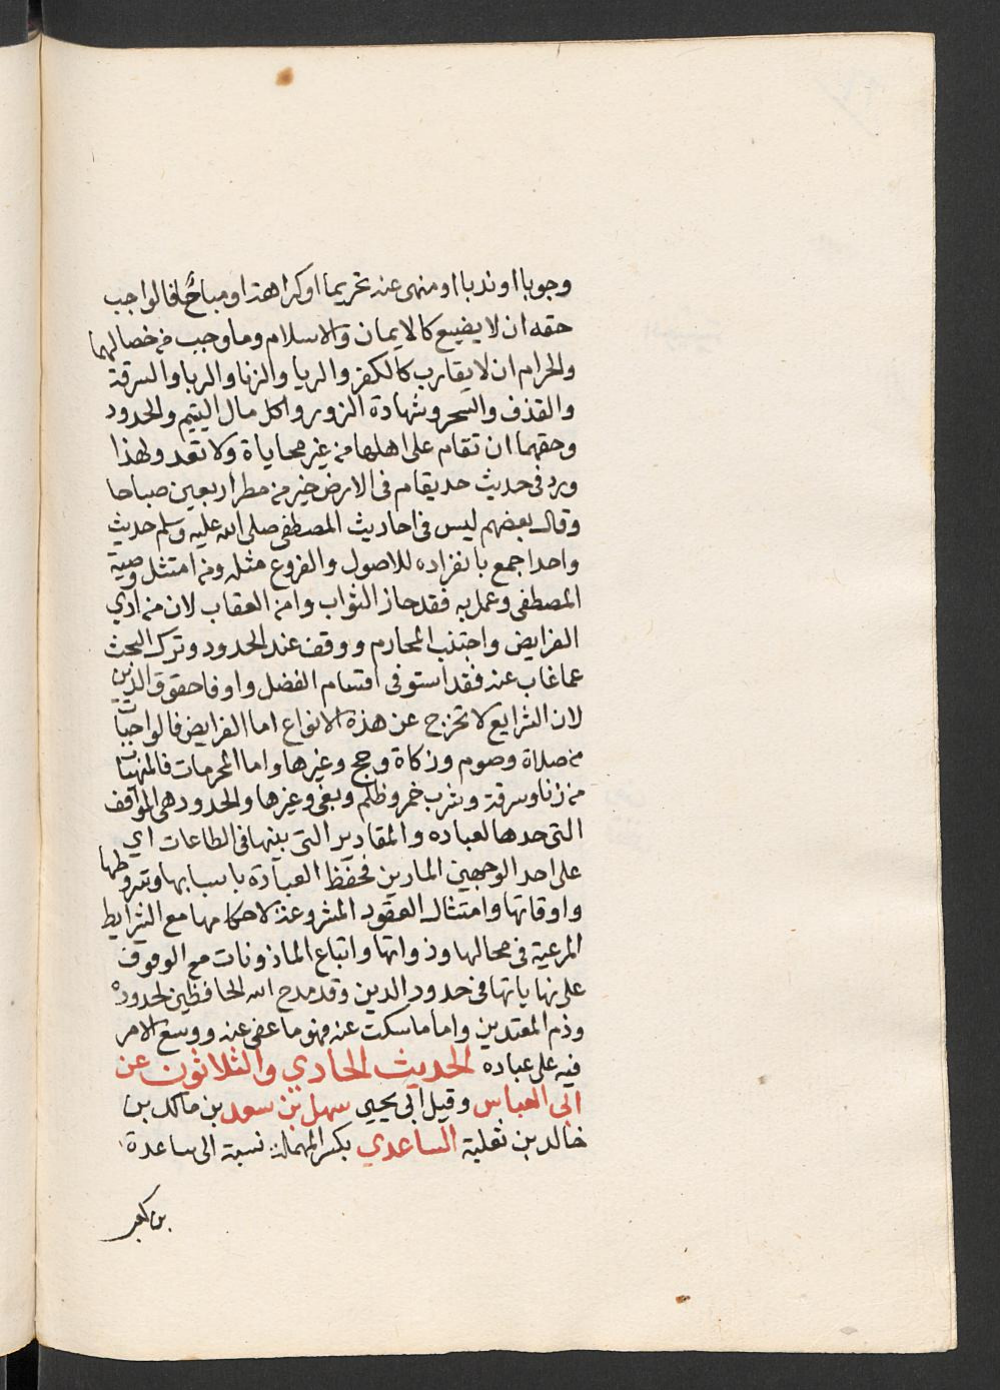 وجوبا اوندبا او منهى عنه تحريما اوكراهة او مباح فالواجب
حقه ان لا يضيع كالايمان والاسلام وما وجب من خصالهما
والحرام ان لا يقارب كالكفر والريا والزنا والربا والسرقة
والقذف والسحر وشهادة الزور واكل مال اليتيم والحدود
وحقهما ان تقام على اهلها من غير محاباة ولا تعد ولهذا
ورد فى حديث حد يقام فى الارض خير من مطر اربعين صباحا
وقال بعضهم ليس فى احاديث المصطفى صلى الله عليه وسلم حديث
واحد اجمع بانفراده للاصول والفروع مثله ومن امتثل وصية
المصطفى وعمل به فقد حاز الثواب وامن العقاب لان من ادي
الفرايض واجتنب المحارم ووقف عند الحدود وترك البحث
عما غاب عنه فقد استوفى اقسام الفضل واوفا حقوق الدين
لان الشرايع لا تخرج عن هذه الانواع اما الفرايض فالواجبات
من صلاة وصوم وزكاة وحج وغيرها واما المحرمات فالمنهيات
من زنا وسرقة وشرب خمر وظلم وبغى وغيرها والحدود هى المواقف
التى حدها لعباده والمقادير التى بينها فى الطاعات اي
على احد الوجهين المارين فحفظ العبادة باسبابها وشروطها
واوقاتها وامتثال العقود المشروعة لاحكامها مع الشرايط
المرعية فى محالها وذواتها واتباع الماذونات مع الوقوف
على نهاياتها فى حدود الدين وقد مدح الله الحافظين لحدوده
وذم المعتدين واما ما سكت عنه فهو ما عفى عنه ووسع الامر
فيه على عباده الحديث الحادي والثلاثون عن
ابى العباس وقيل ابى يحيى سهل بن سعد بن مالك بن
خالد بن ثعلبة الساعدي بكسر المهملة نسبة الى ساعدة
بن كعب